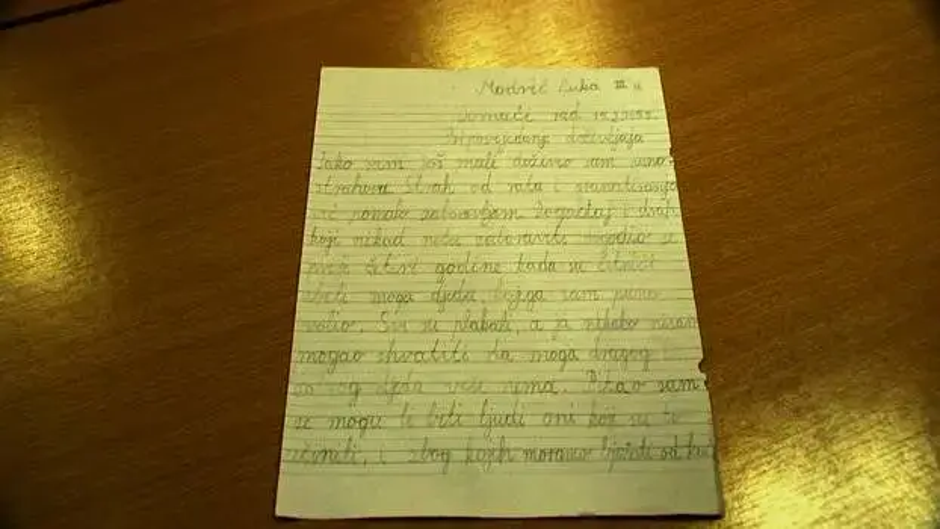 Modrić Luka III
Domaći rad
Pripovijedanje doživljaja
Iako sam još mali doživio sam puno
strahova. Strah od rata i granatiranja
već pomalo zaboravljam. Događaj i strah
koji nikad neću zaboraviti dogodio se
prije četiri godine kada su četnici
ubili moga djeda kojega sam puno
volio. Svi su plakali, a ja nikako nisam
mogao shvatiti da moga dragog
djeda više nema. Pitao sam
se mogu li biti ljudi oni koji su to
učinili, i zbog kojih moramo bježati od kuće